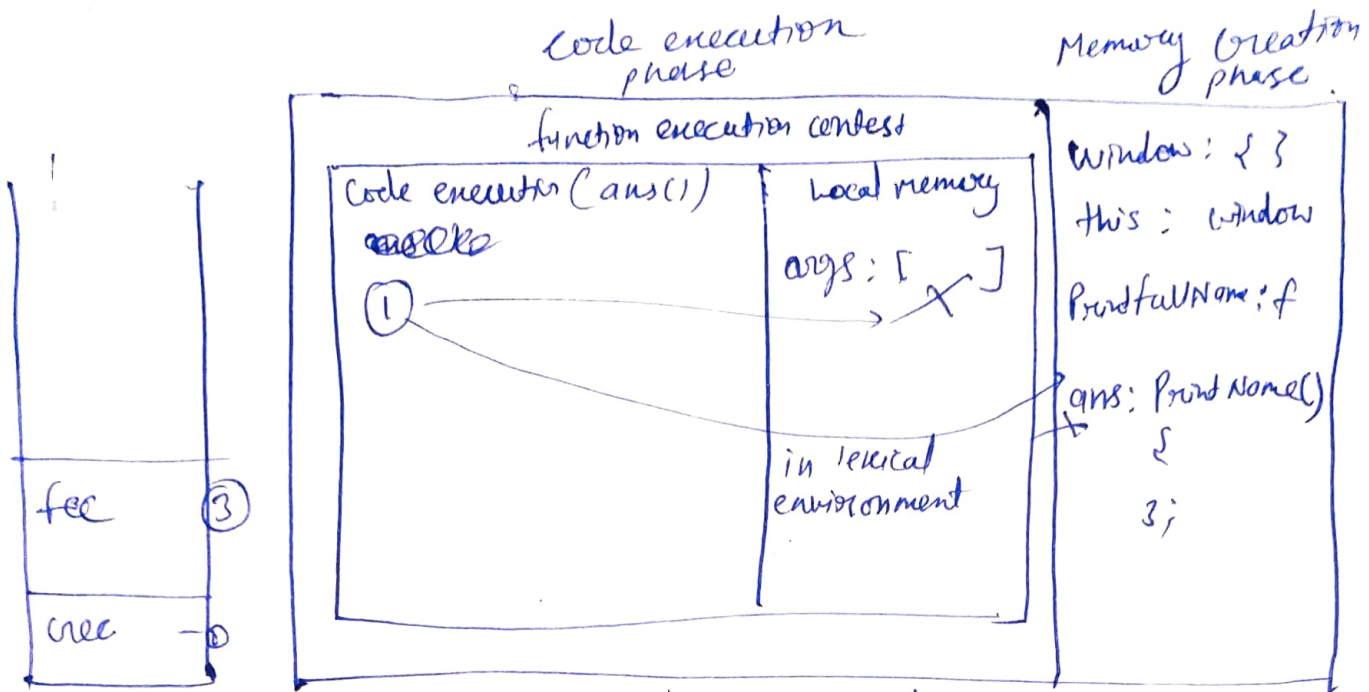 Code execution
phase
Memory Creation
phase.
function execution context
Code execution (ans())
①
Local memory
args: [ ]
in lexical
environment
window: { }
this: window
PrintfullName: f
ans: PrintName()
{
};
fec ③